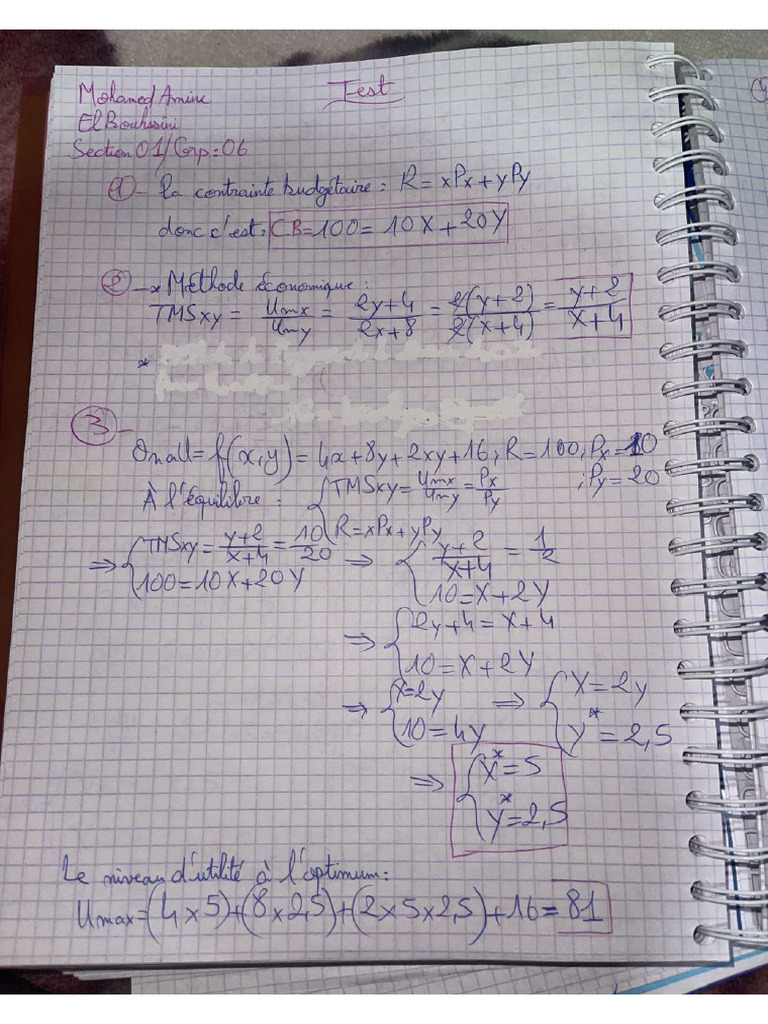 Test
Mohamed Amine
El Bouhssini
Section 01/Grp:06
1- la contrainte budgétaire: R=xPx+yPy
donc c'est: CB=100=10X+20Y
2- * Méthode économique:
TMSxy = Umx/Umy = 2y+4/2x+8 = 2(y+2)/2(x+4) = y+2/x+4
*
3-
On a U=f(x,y)=4x+8y+2xy+16; R=100; Px=10
;Py=20
À l'équilibre: { TMSxy=Umx/Umy=Px/Py
R=xPx+yPy
⇒ { TMSxy=y+2/x+4=10/20
100=10X+20Y
⇒ { y+2/x+4 = 1/2
10=X+2Y
⇒ { 2y+4=X+4
10=X+2Y
⇒ { X=2y
10=4y
⇒ { X=2y
Y*=2,5
⇒ { X*=5
Y*=2,5
Le niveau d'utilité à l'optimum:
Umax=(4×5)+(8×2,5)+(2×5×2,5)+16=81